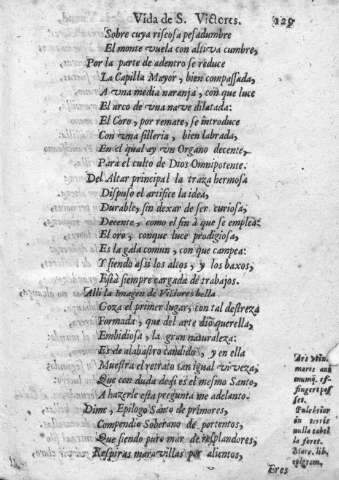 Vida de S. Victores. 129
Sobre cuya riscosa pesadumbre
El monte vuela con altiva cumbre,
Por la parte de adentro se reduce
La Capilla Mayor, bien compassada,
A vna media naranja, con que luce
El arco de vna nave dilatada:
El Coro, por remate, se introduce
Con vna silleria, bien labrada,
En el qual ay vn Organo decente,
Para el culto de Dios Omnipotente.
Del Altar principal la traza hermosa
Dispuso el artifice la idea,
Durable, sin dexar de ser curiosa,
Decente, como el fin à que se emplea:
El oro, conque luce prodigiosa,
Es la gala comun, con que campea:
Y siendo assi los altos, y los baxos,
Està siempre cargada de trabajos.
Alli la Imagen de Victores bella
Goza el primer lugar, con tal destreza
Formada, que del arte dio querella,
Embidiosa, la gran naturaleza:
Es de alabastro candido, y en ella
Muestra el retrato tan igual viveza,
Que con duda de si es el mesmo Santo,
A hazerle esta pregunta me adelanto.
Dime, Epilogo Santo de primores,
Compendio Soberano de portentos,
Que siendo puro mar de resplandores,
Respiras maravillas por alientos,
Ars
mores
effingere pos
set.
Pulchrior
in terris
nulla tabel
la foret.
Marc. lib.
epigram.
Eres